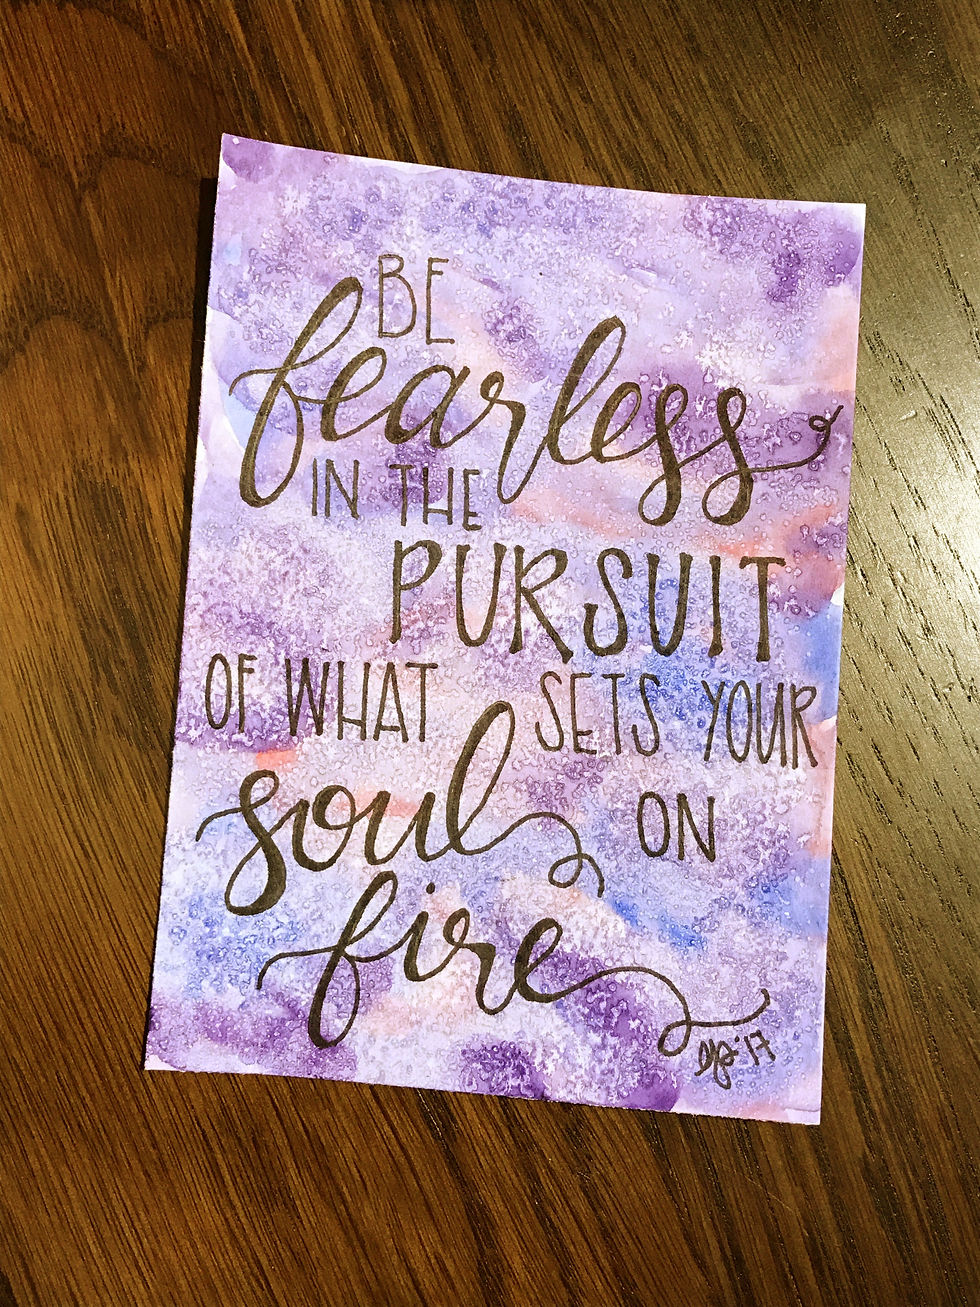 BE
fearless
IN THE
PURSUIT
OF WHAT SETS YOUR
soul ON
fire
'17